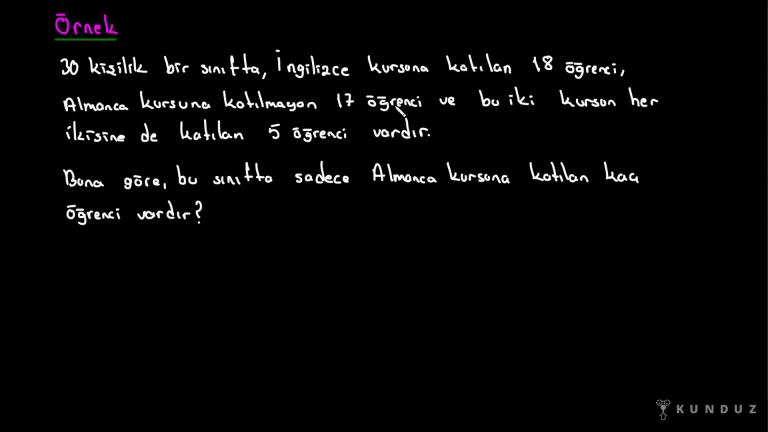 Örnek
30 kişilik bir sınıfta, İngilizce kursuna katılan 18 öğrenci,
Almanca kursuna katılmayan 17 öğrenci ve bu iki kursun her
ikisine de katılan 5 öğrenci vardır.
Buna göre, bu sınıfta sadece Almanca kursuna katılan kaç
öğrenci vardır?
KUNDUZ